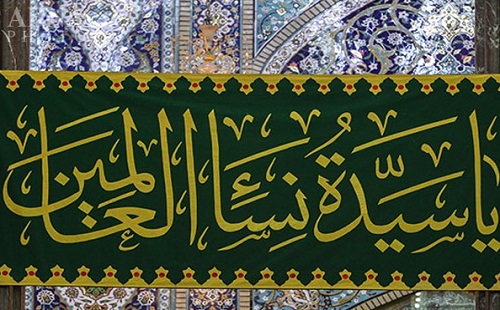 يا سَيِّدَةُ نِسَاءَ العَالَمِينَ